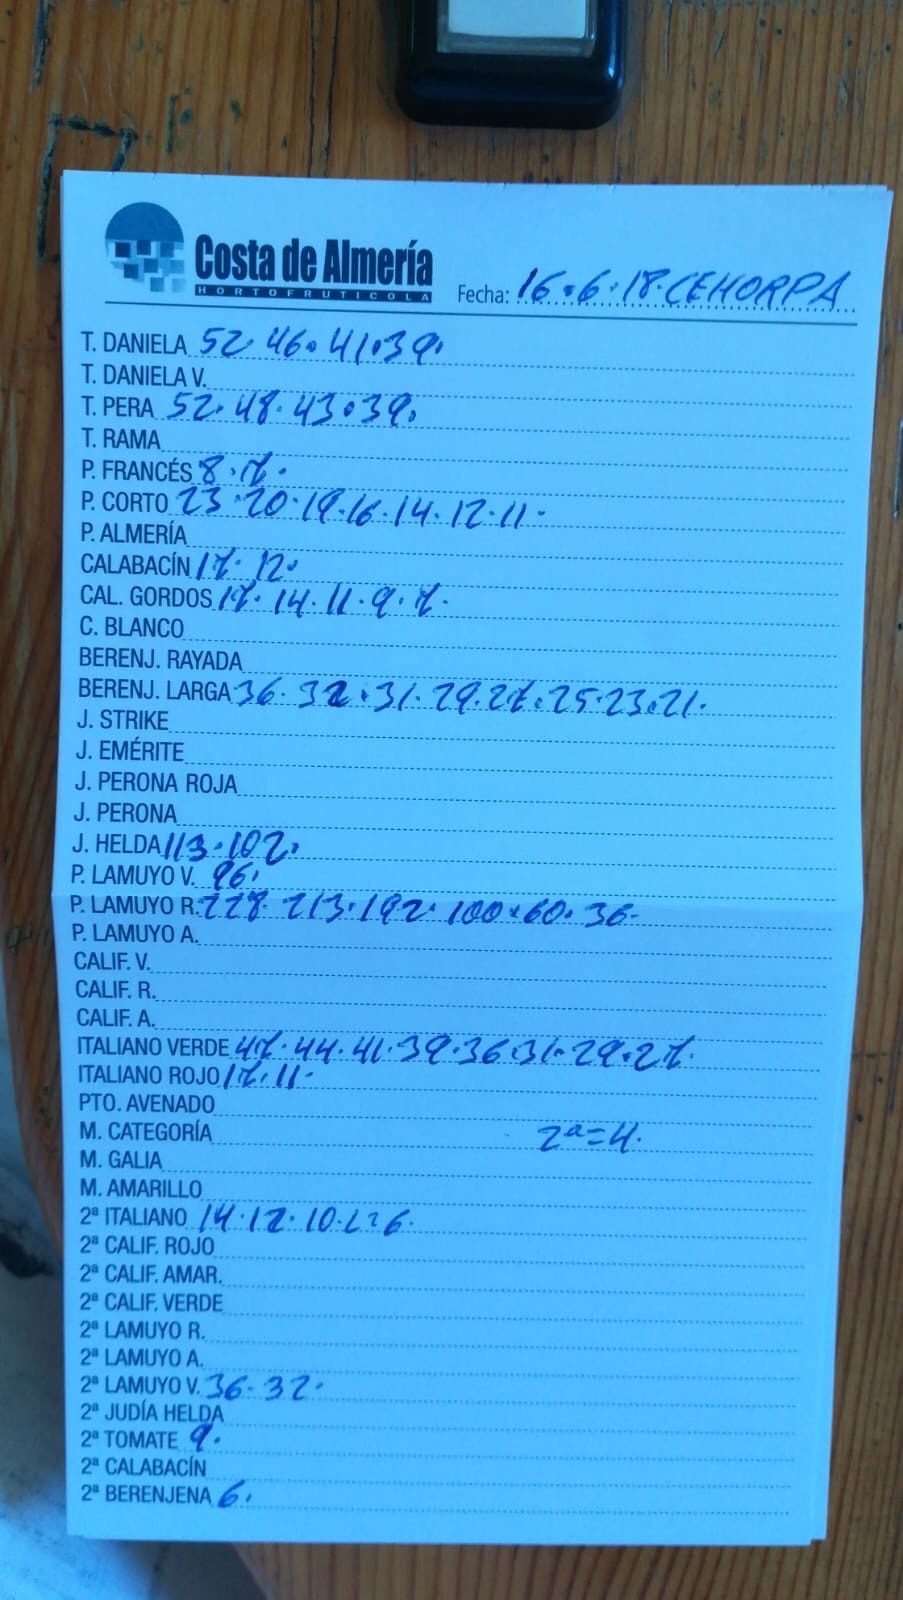 Costa de Almería
HORTOFRUTICOLA
Fecha: 16.6.18.CEHORPA
T. DANIELA 52. 46. 41. 39.
T. DANIELA V.
T. PERA 52. 48. 43. 39.
T. RAMA
P. FRANCÉS 8. 7.
P. CORTO 23. 20. 19. 16. 14. 12. 11.
P. ALMERÍA
CALABACÍN 17. 12.
CAL. GORDOS 17. 14. 11. 9. 7.
C. BLANCO
BERENJ. RAYADA
BERENJ. LARGA 36. 32. 31. 29. 27. 25. 23. 21.
J. STRIKE
J. EMÉRITE
J. PERONA ROJA
J. PERONA
J. HELDA 113. 102.
P. LAMUYO V. 96.
P. LAMUYO R. 228. 213. 192. 100. 60. 36.
P. LAMUYO A.
CALIF. V.
CALIF. R.
CALIF. A.
ITALIANO VERDE 47. 44. 41. 39. 36. 31. 29. 27.
ITALIANO ROJO 17. 11.
PTO. AVENADO
M. CATEGORÍA 2ª=4.
M. GALIA
M. AMARILLO
2ª ITALIANO 14. 12. 10. 6.
2ª CALIF. ROJO
2ª CALIF. AMAR.
2ª CALIF. VERDE
2ª LAMUYO R.
2ª LAMUYO A.
2ª LAMUYO V. 36. 32.
2ª JUDÍA HELDA
2ª TOMATE 9.
2ª CALABACÍN
2ª BERENJENA 6.